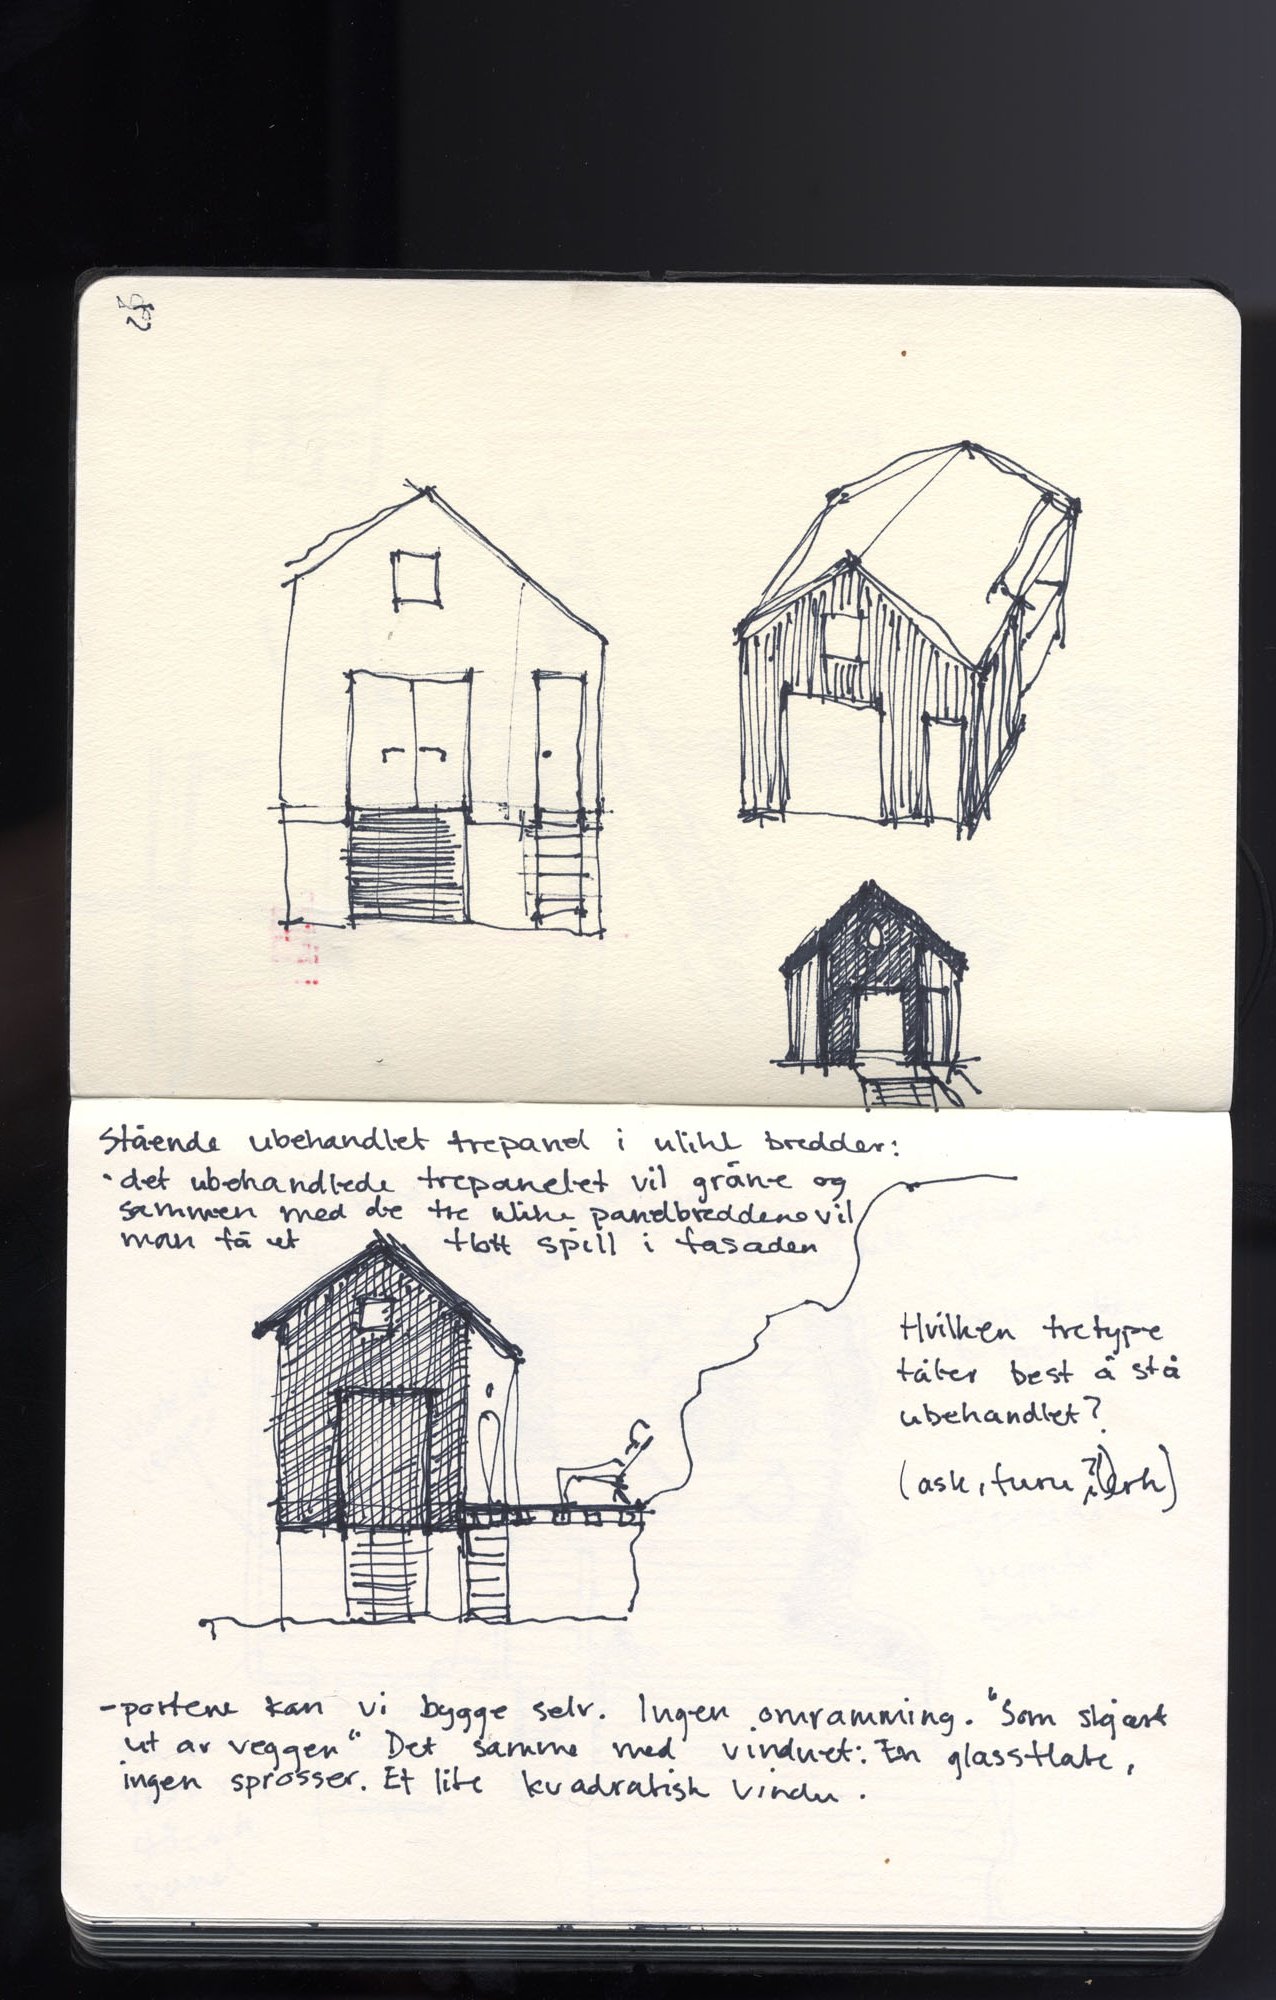 Stående ubehandlet trepanel i ulike bredder:
• det ubehandlede trepanelet vil gråne og
sammen med de tre ulike panelbreddene vil
man få et flott spill i fasaden
Hvilken tretype
tåler best å stå
ubehandlet?
(ask, furu
- portene kan vi bygge selv. Ingen omramming. "Som skjært
ut av veggen" Det samme med vinduet: En glassflate,
ingen sprosser. Et lite kvadratisk vindu.